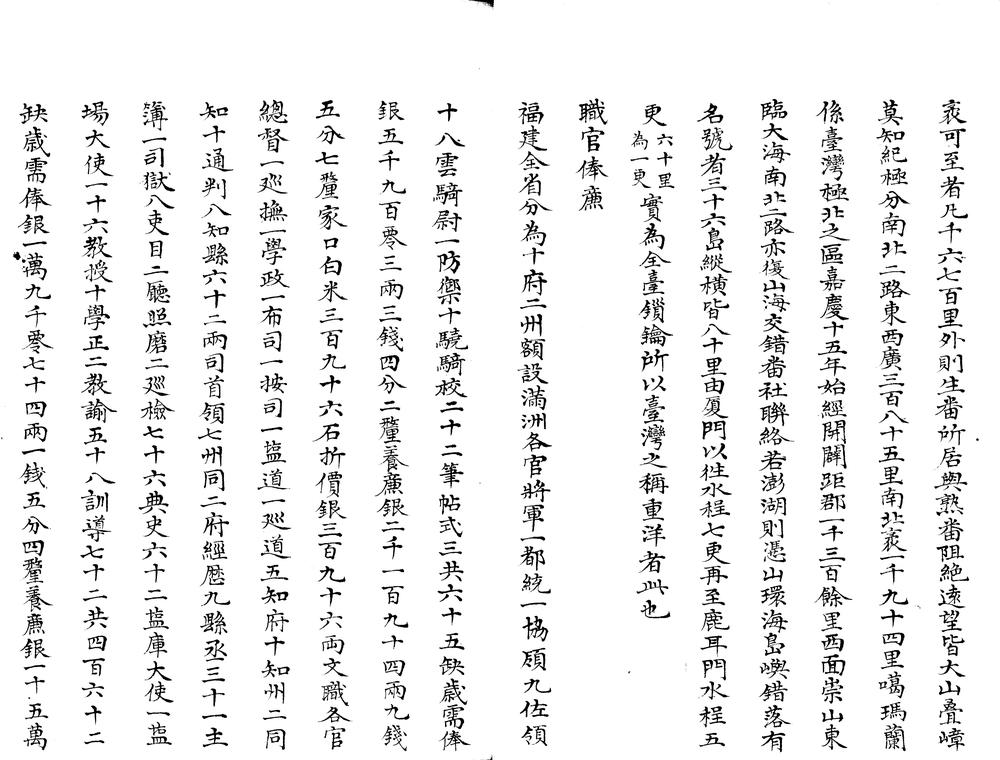 袤可至者凡千六七百里外則生番所居與熟番阻絕遠望皆大山疊嶂
莫知紀極分南北二路東西廣三百八十五里南北袤一千九十四里噶瑪蘭
係臺灣極北之區嘉慶十五年始經開闢距郡一千三百餘里西面崇山東
臨大海南北二路亦復山海交錯番社聯絡若澎湖則憑山環海島嶼錯落有
名號者三十六島縱橫皆八十里由厦門以徃水程七更再至鹿耳門水程五
更六十里為一更實為全臺鎖鑰所以臺灣之稱重洋者此也
職官俸廉
福建全省分為十府二州額設滿洲各官將軍一都統一協領九佐領
十八雲騎尉一防禦十驍騎校二十二筆帖式三共六十五缺歲需俸
銀五千九百零三兩三錢四分二釐養廉銀二千一百九十四兩九錢
五分七釐家口白米三百九十六石折價銀三百九十六兩文職各官
總督一廵撫一學政一布司一按司一塩道一廵道五知府十知州二同
知十通判八知縣六十二兩司首領七州同二府經歷九縣丞三十一主
簿一司獄八吏目二廳照磨二廵檢七十六典史六十二塩庫大使一塩
場大使一十六教授十學正二教諭五十八訓導七十二共四百六十二
缺歲需俸銀一萬九千零七十四兩一錢五分四釐養廉銀一十五萬